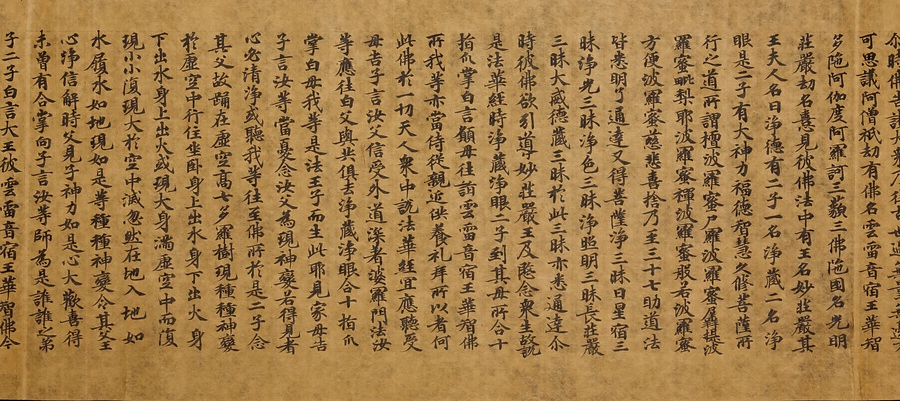 可思議阿僧祇劫有佛名雲雷音宿王華智
多陁阿伽度阿羅訶三藐三佛陁國名光明
莊嚴劫名憙見彼佛法中有王名妙莊嚴其
王夫人名曰淨德有二子一名淨藏二名淨
眼是二子有大神力福德智慧久修菩薩所
行之道所謂檀波羅蜜尸羅波羅蜜羼提波
羅蜜毗梨耶波羅蜜禪波羅蜜般若波羅蜜
方便波羅蜜慈悲喜捨乃至三十七助道法
皆悉明了通達又得菩薩淨三昧日星宿三
昧淨光三昧淨色三昧淨照明三昧長莊嚴
三昧大威德藏三昧於此三昧亦悉通達尒
時彼佛欲引導妙莊嚴王及愍念衆生故說
是法華經時淨藏淨眼二子到其母所合十
指爪掌白言願母往詣雲雷音宿王華智佛
所我等亦當侍從親近供養礼拜所以者何
此佛於一切天人衆中說法華經宜應聽受
母告子言汝父信受外道深著婆羅門法汝
等應往白父與共俱去淨藏淨眼合十指爪
掌白母我等是法王子而生此耶見家母告
子言汝等當憂念汝父為現神變若得見者
心必清淨或聽我等往至佛所於是二子念
其父故踊在虛空高七多羅樹現種種神變
於虛空中行住坐臥身上出水身下出火身
下出水身上出火或現大身滿虛空中而復
現小小復現大於空中滅忽然在地入地如
水履水如地現如是等種種神變令其父王
心淨信解時父見子神力如是心大歡喜得
未曾有合掌向子言汝等師為是誰誰之弟
子二子白言大王彼雲雷音宿王華智佛今